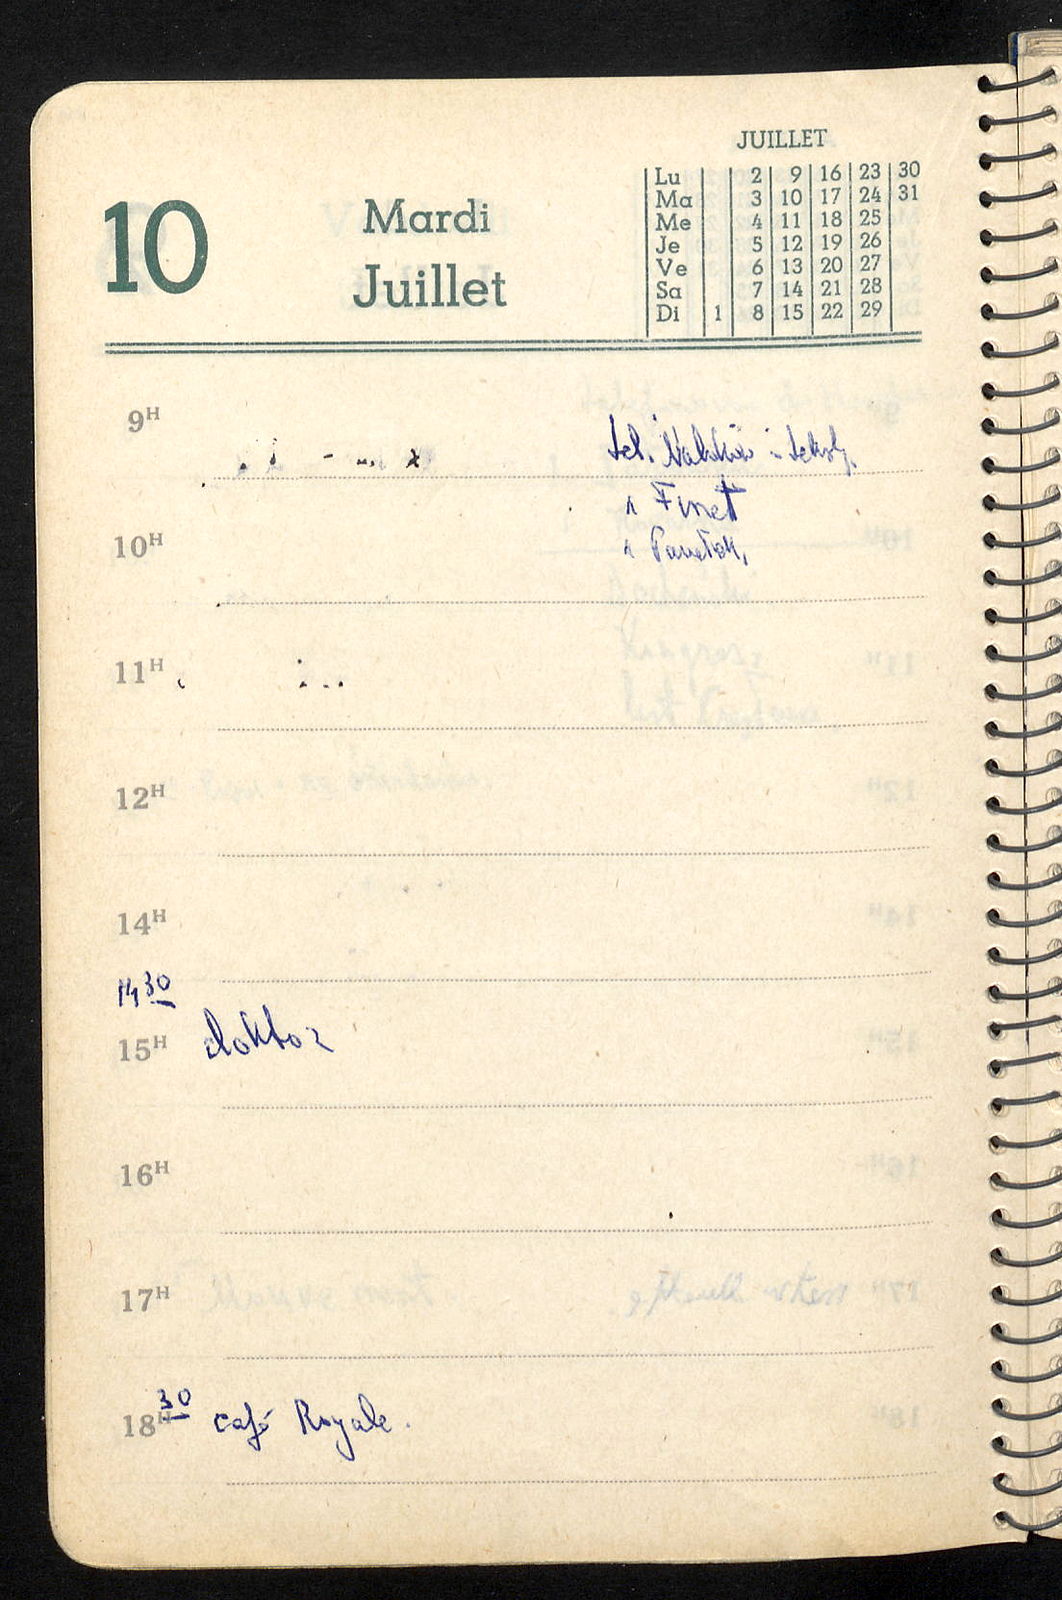 JUILLET
Lu 2 9 16 23 30
Ma 3 10 17 24 31
Me 4 11 18 25
Je 5 12 19 26
Ve 6 13 20 27
Sa 7 14 21 28
Di 1 8 15 22 29
10 Mardi
Juillet
9H
tel.
10H
11H
12H
14H
14 30
15H doktor
16H
17H
18H 30 café Royale.